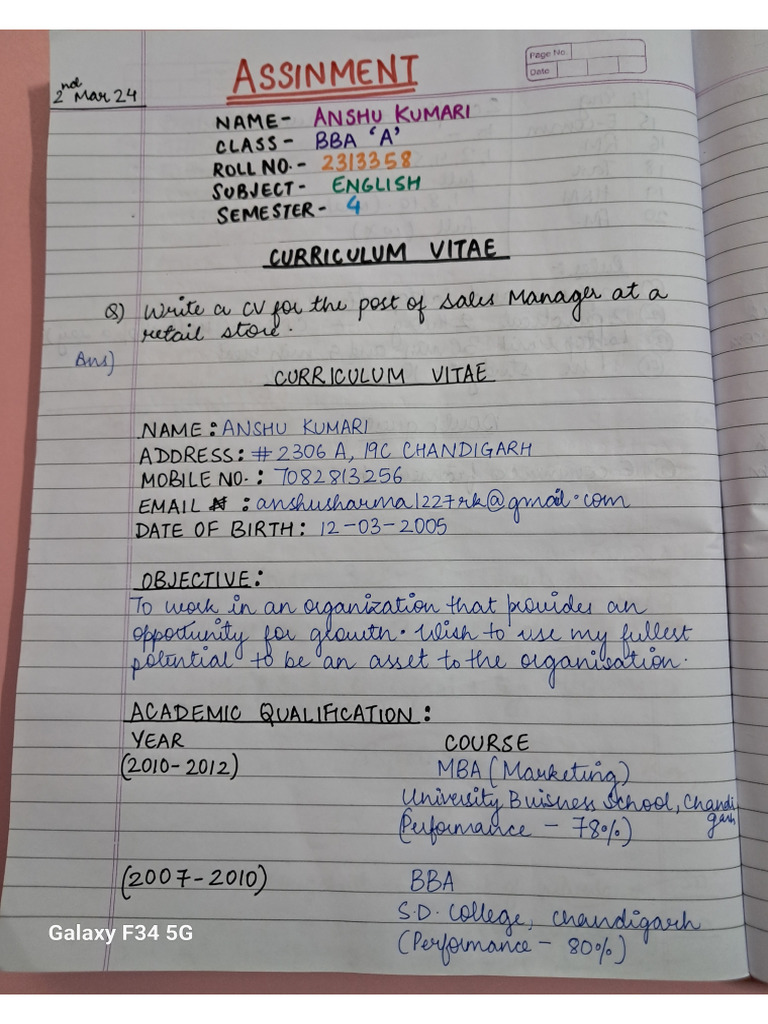 ASSINMENT
Page No
Date
2nd Mar 24
NAME- ANSHU KUMARI
CLASS- BBA 'A'
ROLL NO.- 2313358
SUBJECT- ENGLISH
SEMESTER- 4
CURRICULUM VITAE
Q) Write a CV for the post of Sales Manager at a
retail store.
Ans)
CURRICULUM VITAE
NAME: ANSHU KUMARI
ADDRESS: # 2306 A, 19C CHANDIGARH
MOBILE NO.: 7082813256
EMAIL : anshusharma1227rk@gmail.com
DATE OF BIRTH: 12-03-2005
OBJECTIVE:
To work in an organization that provides an
opportunity for growth. Wish to use my fullest
potential to be an asset to the organisation.
ACADEMIC QUALIFICATION:
YEAR COURSE
(2010-2012) MBA (Marketing)
University Buisness School, Chandigarh
(Performance - 78%)
(2007-2010) BBA
S.D. College, Chandigarh
(Performance - 80%)
Galaxy F34 5G